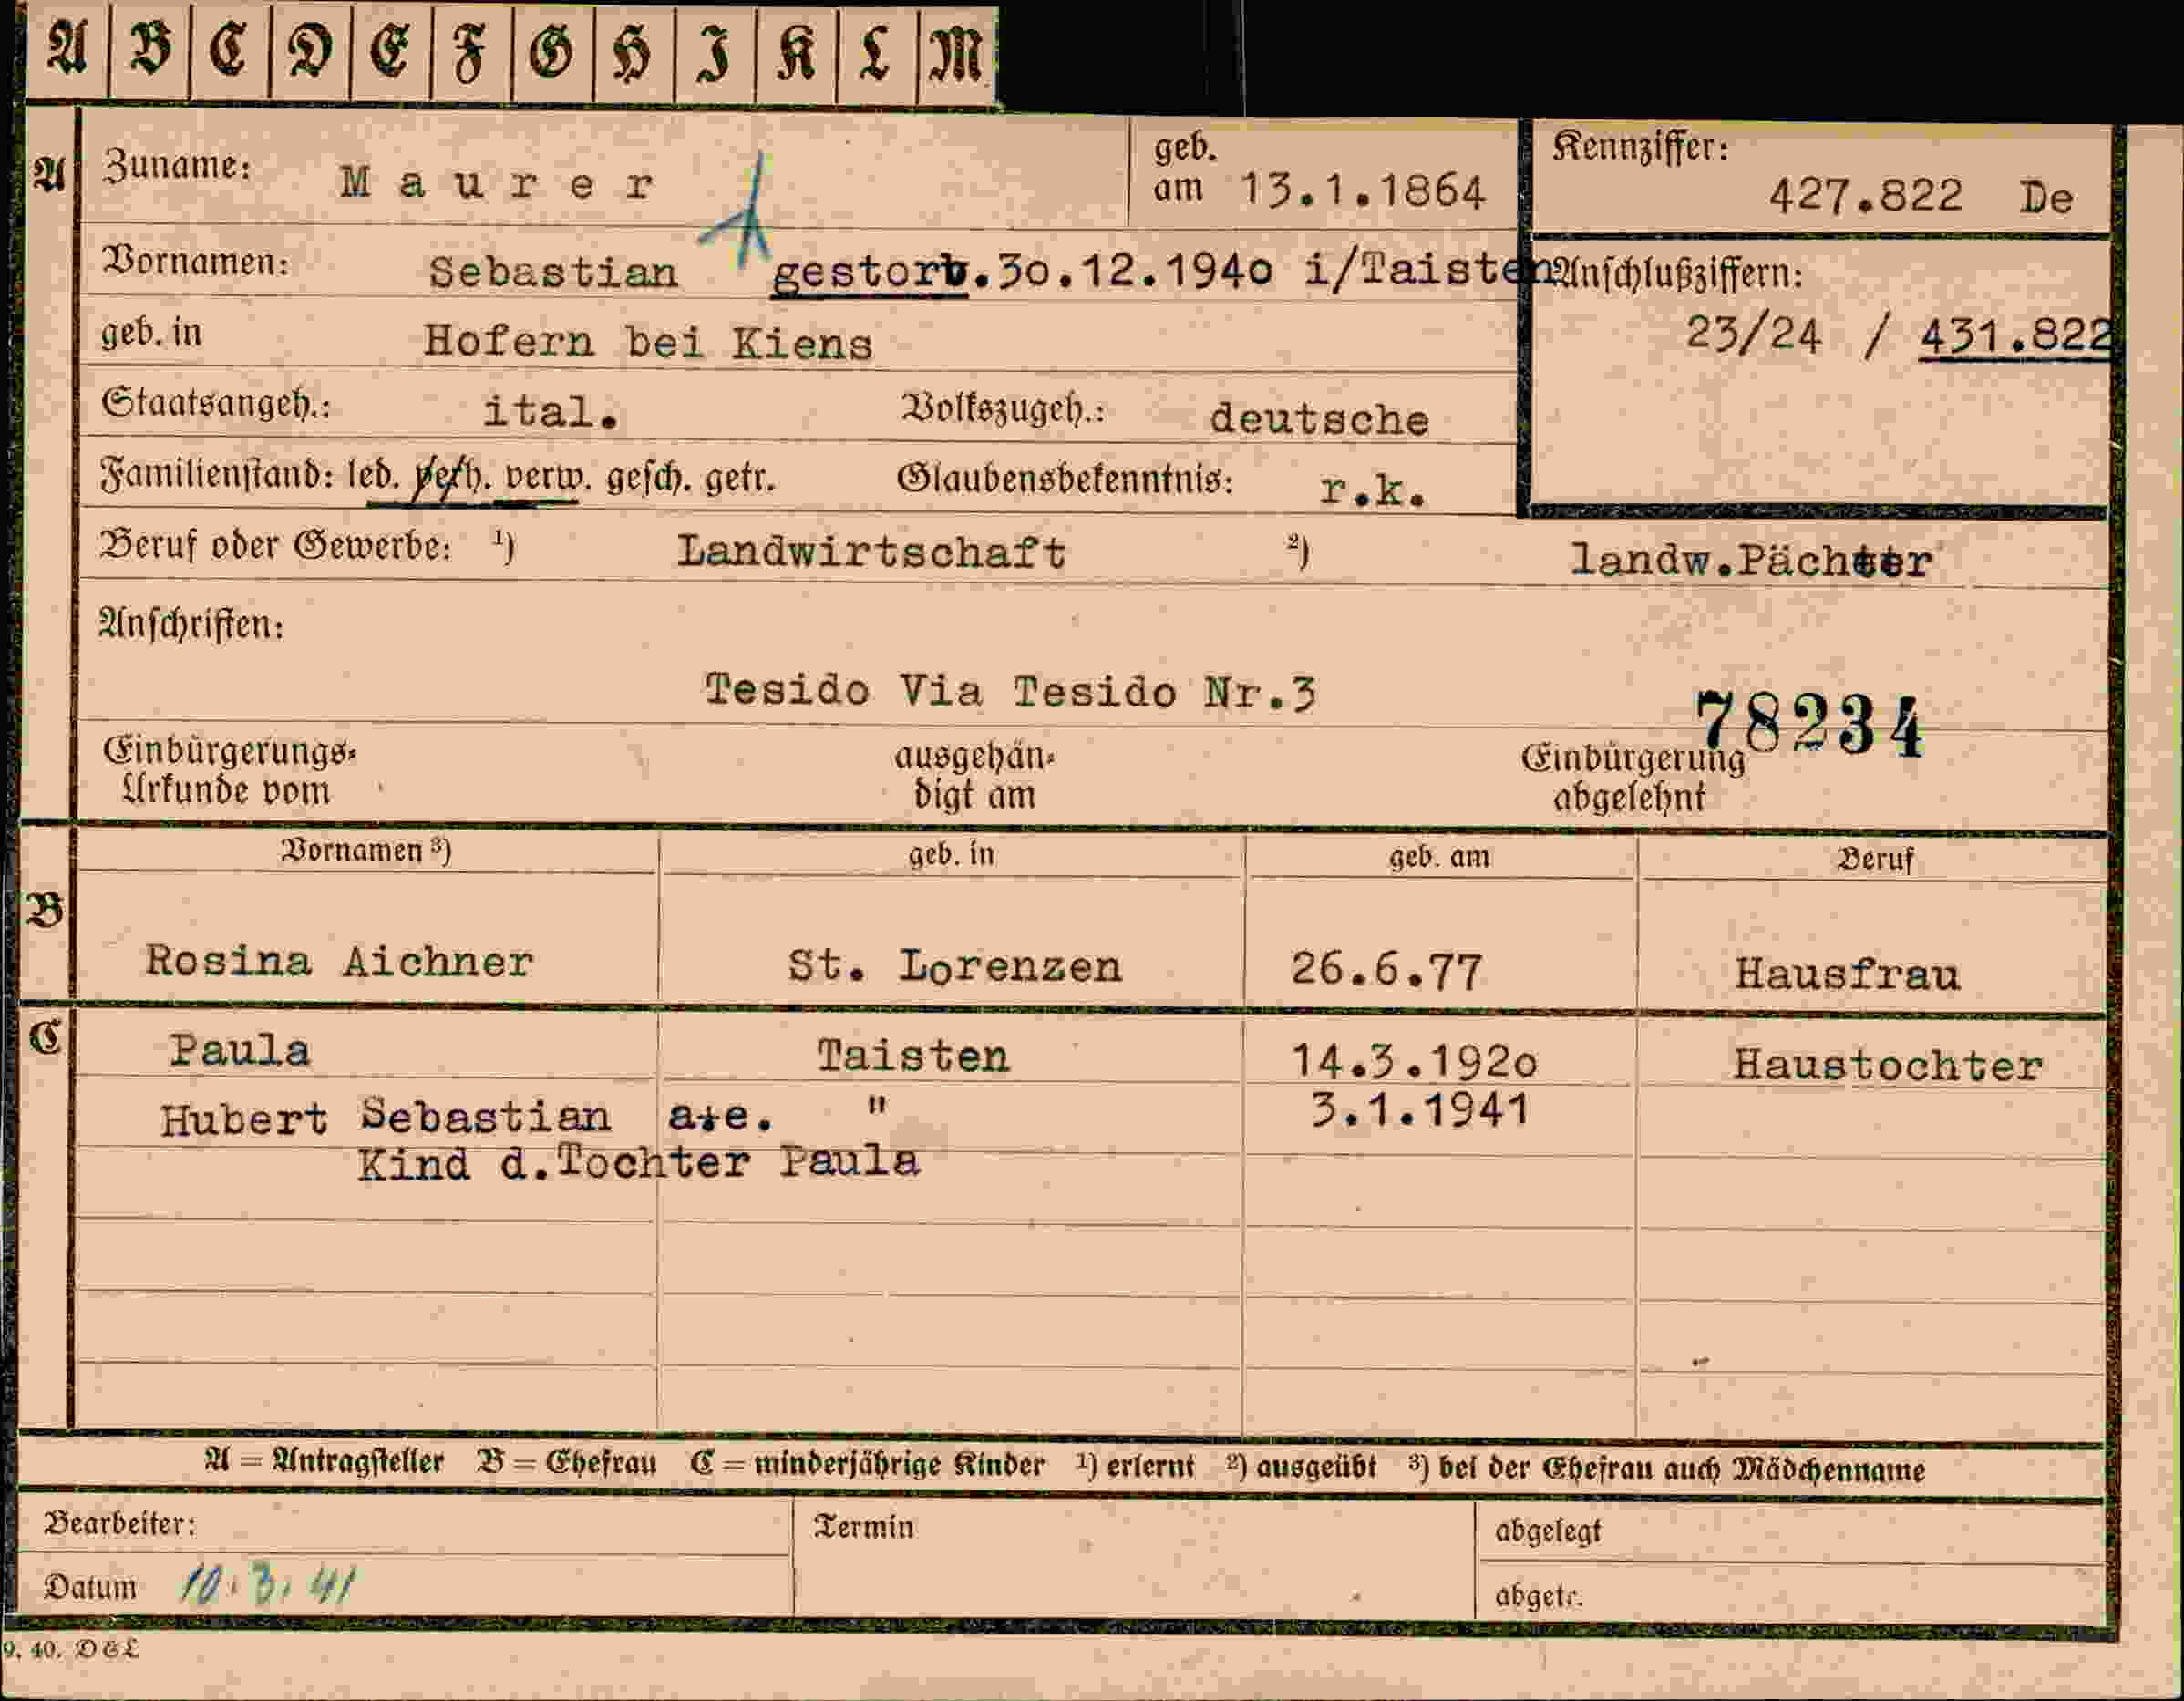 A B C D E F G H I K L M
A Zuname: Maurer geb. am 13.1.1864 Kennziffer: 427.822 De
Vornamen: Sebastian gestorb.3o.12.194o i/Taisten Anschlußziffern:
geb. in Hofern bei Kiens 23/24 / 431.822
Staatsangeh.: ital. Volkszugeh.: deutsche
Familienstand: led. verh. verw. gesch. getr. Glaubensbekenntnis: r.k.
Beruf oder Gewerbe: 1) Landwirtschaft 2) landw.Pächter
Anschriften:
Tesido Via Tesido Nr.3
78234
Einbürgerungs- ausgehän- Einbürgerung
Urkunde vom digt am abgelehnt
Vornamen 3) geb. in geb. am Beruf
B
Rosina Aichner St. Lorenzen 26.6.77 Hausfrau
C Paula Taisten 14.3.192o Haustochter
Hubert Sebastian a+e. " 3.1.1941
Kind d.Tochter Paula
A = Antragsteller B = Ehefrau C = minderjährige Kinder 1) erlernt 2) ausgeübt 3) bei der Ehefrau auch Mädchenname
Bearbeiter: Termin abgelegt
Datum 10.3.41 abgetr.
9. 40. DGL